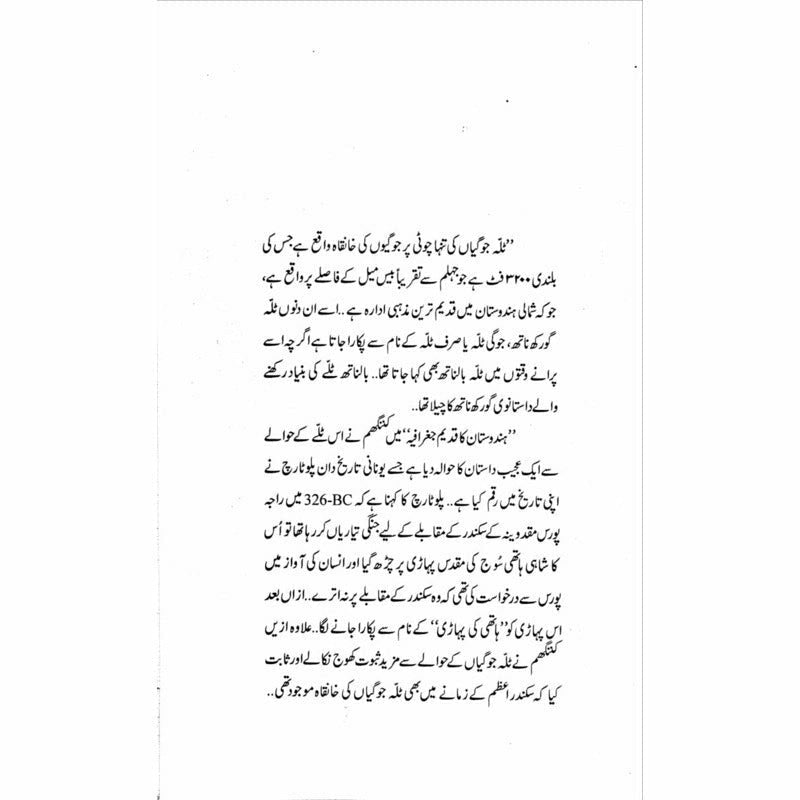 ’’ٹلّہ جوگیاں کی تنہا چوٹی پر جوگیوں کی خانقاہ واقع ہے جس کی
بلندی ۳۲۰۰ فٹ ہے جو جہلم سے تقریباً بیس میل کے فاصلے پر واقع ہے،
جو کہ شمالی ہندوستان میں قدیم ترین مذہبی ادارہ ہے.. اسے ان دنوں ٹلّہ
گورکھ ناتھ، جوگی ٹلّہ یا صرف ٹلّہ کے نام سے پکارا جاتا ہے اگرچہ اسے
پرانے وقتوں میں ٹلّہ بالناتھ بھی کہا جاتا تھا.. بالناتھ ٹلّے کی بنیاد رکھنے
والے داستانوی گورکھ ناتھ کا چیلا تھا..
’’ہندوستان کا قدیم جغرافیہ‘‘ میں کننگھم نے اس ٹلّے کے حوالے
سے ایک عجیب داستان کا حوالہ دیا ہے جسے یونانی تاریخ دان پلوٹارچ نے
اپنی تاریخ میں رقم کیا ہے.. پلوٹارچ کا کہنا ہے کہ 326-BC میں راجہ
پورس مقدونیہ کے سکندر کے مقابلے کے لیے جنگی تیاریاں کر رہا تھا تو اُس
کا شاہی ہاتھی سُوج کی مقدس پہاڑی پر چڑھ گیا اور انسان کی آواز میں
پورس سے درخواست کی تھی کہ وہ سکندر کے مقابلے پر نہ اترے.. ازاں بعد
اس پہاڑی کو ’’ہاتھی کی پہاڑی‘‘ کے نام سے پکارا جانے لگا.. علاوہ ازیں
کننگھم نے ٹلّہ جوگیاں کے حوالے سے مزید ثبوت کھوج نکالے اور ثابت
کیا کہ سکندر اعظم کے زمانے میں بھی ٹلّہ جوگیاں کی خانقاہ موجود تھی..